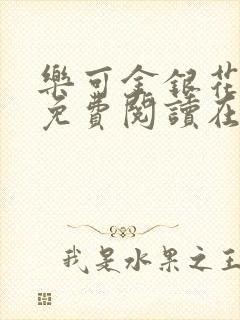 樂可金銀花
免費閱讀在
我是水果之王